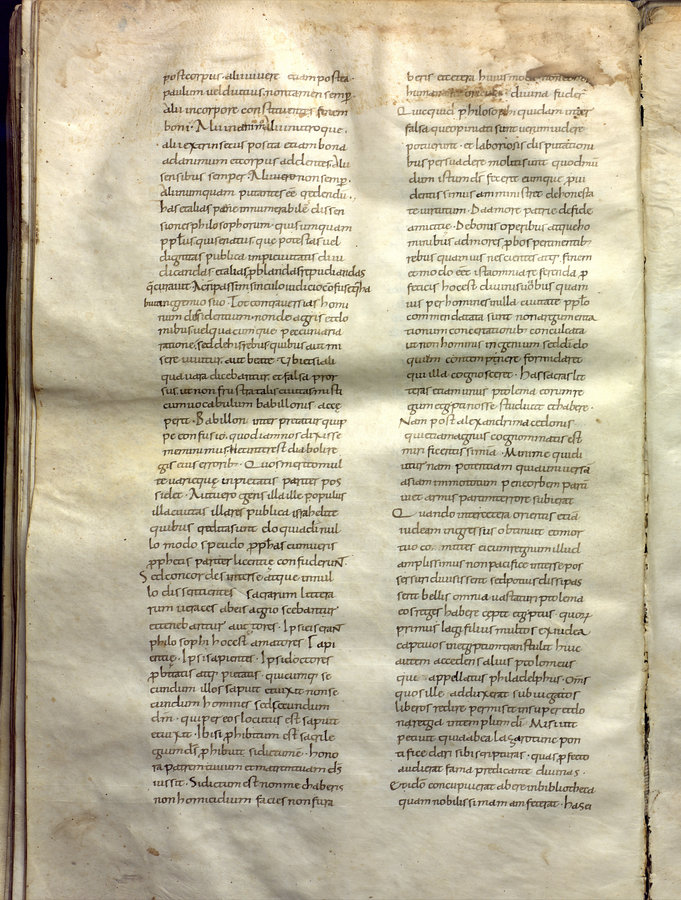 post corpus · alii vivere etiam postea ·
paulum vel diutius, non tamen semp̄ ·
alii in corpore constituentes finem
boni · Alii in animo alii in utroque ·
alii extrinsecus posita etiam bona
ad animum et corpus addentes, alii
sensibus semper · Alii vero non semp̄ ·
alii numquam putantes eē credendū ·
has et alias pene innumerabiles dissen
siones philosophorum · quis umquam
ppl̄us quis senatus que potestas vel
dignitas publica impie civitatis diiu
dicandas et alias ꝓbandas repudiandas
curavit · Ac ñ passim sine ullo iudicio confuseq; ha
buit in gremio suo · Tot controversias homi
num dissidentium · non de agris et do
mibus vel quacumque pecuniaria
ratione, sed de his rebus quibus aut mi
sere vivitur, aut beate · Ubi etsi ali
qua vera dicebantur, et falsa pror
sus, ut non frustra talis civitas misti
cum vocabulum babillonis acce
perit · Babillon interpretatur quip
pe confusio, quod iam nos dixisse
meminimus · Nec interest diaboli re
gis eius erroribꝰ · Quos merito mul
te varieque inpietatis pariter pos
sidet · At vero gens illa ille populus
illa civitas illa res publica israhelite
quibus credita sunt eloquia dī nul
lo modo pseudo ꝓphetas cum veris
ꝓphetis pariter licentie confuderunt ·
Sed concordes inter se atque in nul
lo dissentientes sacrarum littera
rum veraces ab eis agnoscebantur
et tenebantur auctores · Ipsi eis erant
philosophi hoc est amatores sapi
entiae · Ipsi sapientes · Ipsi doctores
ꝓbitatis atq; pietatis · quicumq; se
cundum illos sapuit et vixit non se
cundum homines sed secundum
dm̄ · qui per eos locutus est sapuit
et vixit · Ibi si ꝓhibitum est sacrile
gium ds̄ ꝓhibuit · si dictum ē · hono
ra patrem tuum et matrem tuam ds̄
iussit · Si dictum est non mechaberis
non homicidium facies non fura
beris et cetera huiusmodi non
humana divina fuder̄
Quicquid philosophi quidam inter
falsa que opinati sunt verum videre
potuerunt · et laboriosis disputationi
bus persuadere moliti sunt quod mū
dum istum ds̄ fecerit eumque ꝓvi
dentissimus amministret de honesta
te virtutum · De amore patrie de fide
amicitie · De bonis operibus atque ho
minibus ad mores ꝓbos pertinentibꝰ
rebus quamvis nescientes atq; finem
et modo eēt ista omnia referenda, ꝓ
feticis hoc est divinis vocibus quam
vis per homines in illa civitate ppl̄o
commendata sunt non argumenta
tionum concertationibꝰ conculcata
ut non hominis ingenium sed dī elo
quium contempnere formidaret
qui illa cognosceret · has sacras lit
teras etiam unus ptolemeorum re
gum egypti nosse studuit et habere ·
Nam post alexandrim macedonis
qui etiam magnus cognominatus est
mirificentissimā · Minime que diu
turnam potentiam qua universa
asiam immo totum pene orbem partī
vi et armis partim terrore subigerat
Quando inter cetera orientis etiā
iudeam ingressus obtinuit eo mor
tuo comites eius cum regnum illud
amplissimum non pacifice inter se pos
sessuri divisissent sed potius dissipas
sent bellis omnia vastaturi ptolemeos
reges habere cepit egiptus · quorꝝ
primus lagi filius multos ex iudea
captivos in egyptum transtulit huic
autem accedens alius ptolomeus
qui appellatus philadelphus · Om̄s
quos ille adduxerat subiugatos
liberos redire permisit insuper et do
na regia in templum dī · Misit et
petivit quia ab eleazaro tunc pon
tifice dari sibi scripturas · quas ꝓfecto
audierat fama predicante divinas ·
Et ideo concupiverat habere in bibliotheca
quam nobilissimam fecerat · has ei